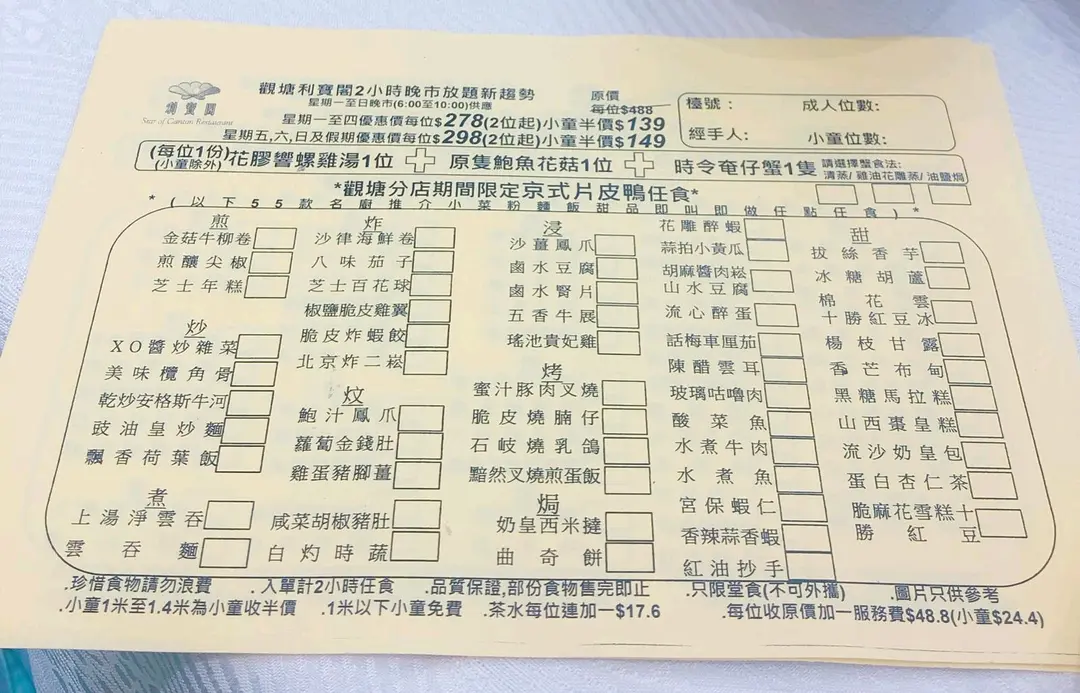 利寶閣
Star of Canton Restaurant
觀塘利寶閣2小時晚市放題新趨勢
星期一至日晚市(6:00至10:00)供應
原價
每位$488
星期一至四優惠價每位$278(2位起)小童半價$139
星期五,六,日及假期優惠價每位$298(2位起)小童半價$149
檯號：
成人位數:
經手人：
小童位數:
(每位1份)
(小童除外)
花膠響螺雞湯1位
原隻鮑魚花菇1位
時令奄仔蟹1隻
請選擇蟹食法:
清蒸/ 雞油花雕蒸/ 油鹽焗
*觀塘分店期間限定京式片皮鴨任食*
*(以下55款名廚推介小菜粉麵飯甜品即叫即做任點任食)*
煎
金菇牛柳卷
煎釀尖椒
芝士年糕
炒
XO醬炒雜菜
美味欖角骨
乾炒安格斯牛河
豉油皇炒麵
飄香荷葉飯
煮
上湯淨雲吞
雲吞麵
炸
沙律海鮮卷
八味茄子
芝士百花球
椒鹽脆皮雞翼
脆皮炸蝦餃
北京炸二崧
炆
鮑汁鳳爪
蘿蔔金錢肚
雞蛋豬腳薑
咸菜胡椒豬肚
白灼時蔬
浸
沙薑鳳爪
鹵水豆腐
鹵水腎片
五香牛展
瑤池貴妃雞
烤
蜜汁豚肉叉燒
脆皮燒腩仔
石岐燒乳鴿
黯然叉燒煎蛋飯
焗
奶皇西米撻
曲奇餅
花雕醉蝦
蒜拍小黃瓜
胡麻醬肉崧
山水豆腐
流心醉蛋
話梅車厘茄
陳醋雲耳
玻璃咕嚕肉
酸菜魚
水煮牛肉
水煮魚
宮保蝦仁
香辣蒜香蝦
紅油抄手
甜
拔絲香芋
冰糖胡蘆
棉花雲
十勝紅豆冰
楊枝甘露
香芒布甸
黑糖馬拉糕
山西棗皇糕
流沙奶皇包
蛋白杏仁茶
脆麻花雪糕十
勝紅豆
.珍惜食物請勿浪費
.入單計2小時任食
.品質保證,部份食物售完即止
.只限堂食(不可外攜)
.圖片只供參考
.小童1米至1.4米為小童收半價
.1米以下小童免費
.茶水每位連加一$17.6
.每位收原價加一服務費$48.8(小童$24.4)